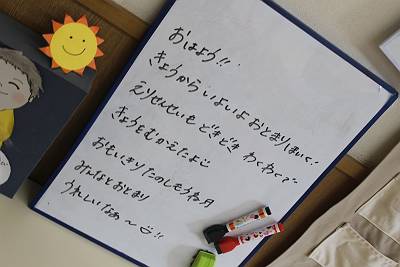 おはよう!!
きょうからいよいよおとまりほいく!
えりせんせいも どきどき わくわくで
きょうをむかえたよ
おもいきりたのしもうね
みんなとおとまり
うれしいなぁ〜!!